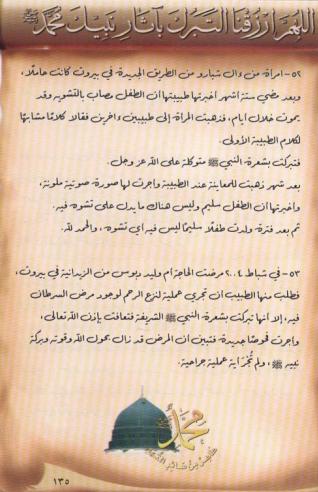 اللهم ارزقنا التبرك بآثار نبيك محمد ﷺ
٥٢- امرأة من ءال شبارو من الطريق الجديدة في بيروت كانت حاملا،
وبعد مضي ستة اشهر اخبرتها طبيبتها ان الطفل مصاب بالتشويه وقد
يموت خلال ايام، فذهبت المرأة إلى طبيبين ءاخرين فقالا كلامًا مشابهًا
لكلام الطبيبة الأولى.
فتبركت بشعرة النبي ﷺ متوكلة على الله عز وجل.
بعد شهر ذهبت للمعاينة عند الطبيبة واجرت لها صورة صوتية ملونة،
واخبرتها ان الطفل سليم وليس هناك ما يدل على تشوه فيه.
ثم بعد فترة ولدت طفلًا سليمًا ليس فيه أي تشوه، والحمد لله.
٥٣- في شباط ٢٠٠٤ مرضت الحاجة أم وليد دبوس من الزيدانية في بيروت،
فطلب منها الطبيب ان تجري عملية لنزع الرحم لوجود مرض السرطان
فيه، إلا أنها تبركت بشعرة النبي ﷺ الشريفة فتعافت بإذن الله تعالى،
واجرت فحوصًا جديدة فتبين أن المرض قد زال بحول الله وقوته وبركة
نبيه ﷺ، ولم تُجْرَ أية عملية جراحية.
محمد ﷺ
١٣٥